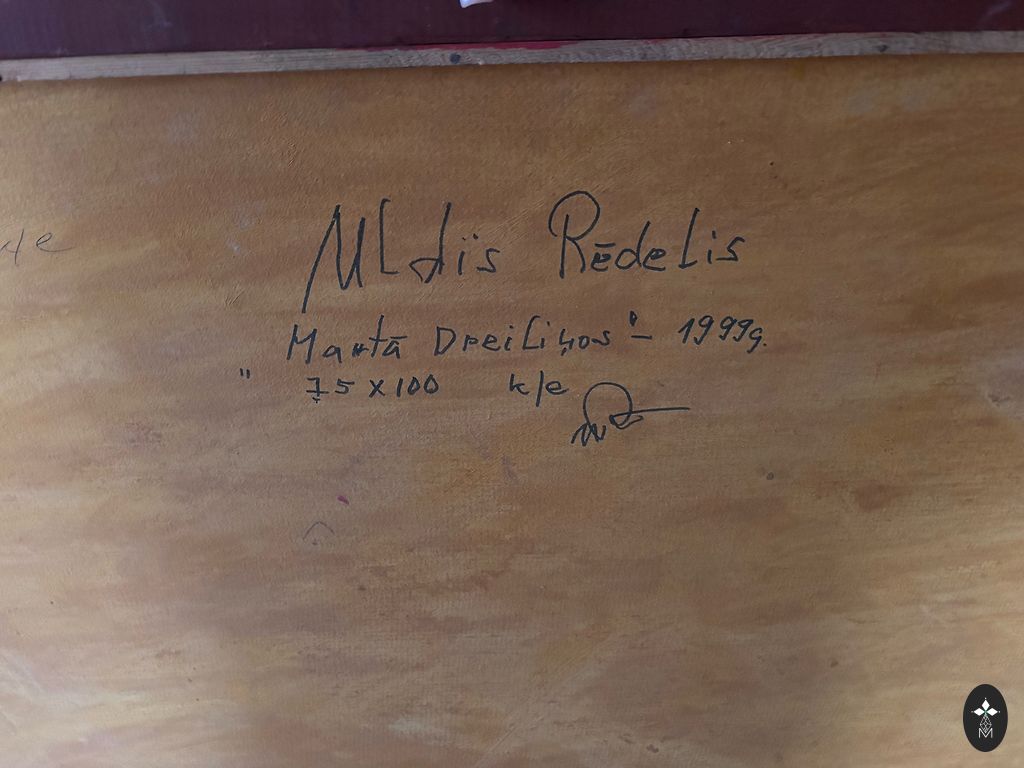 Uldis Rēdelis
"Martā Dreiliņos" – 1999g.
75 x 100 k/e